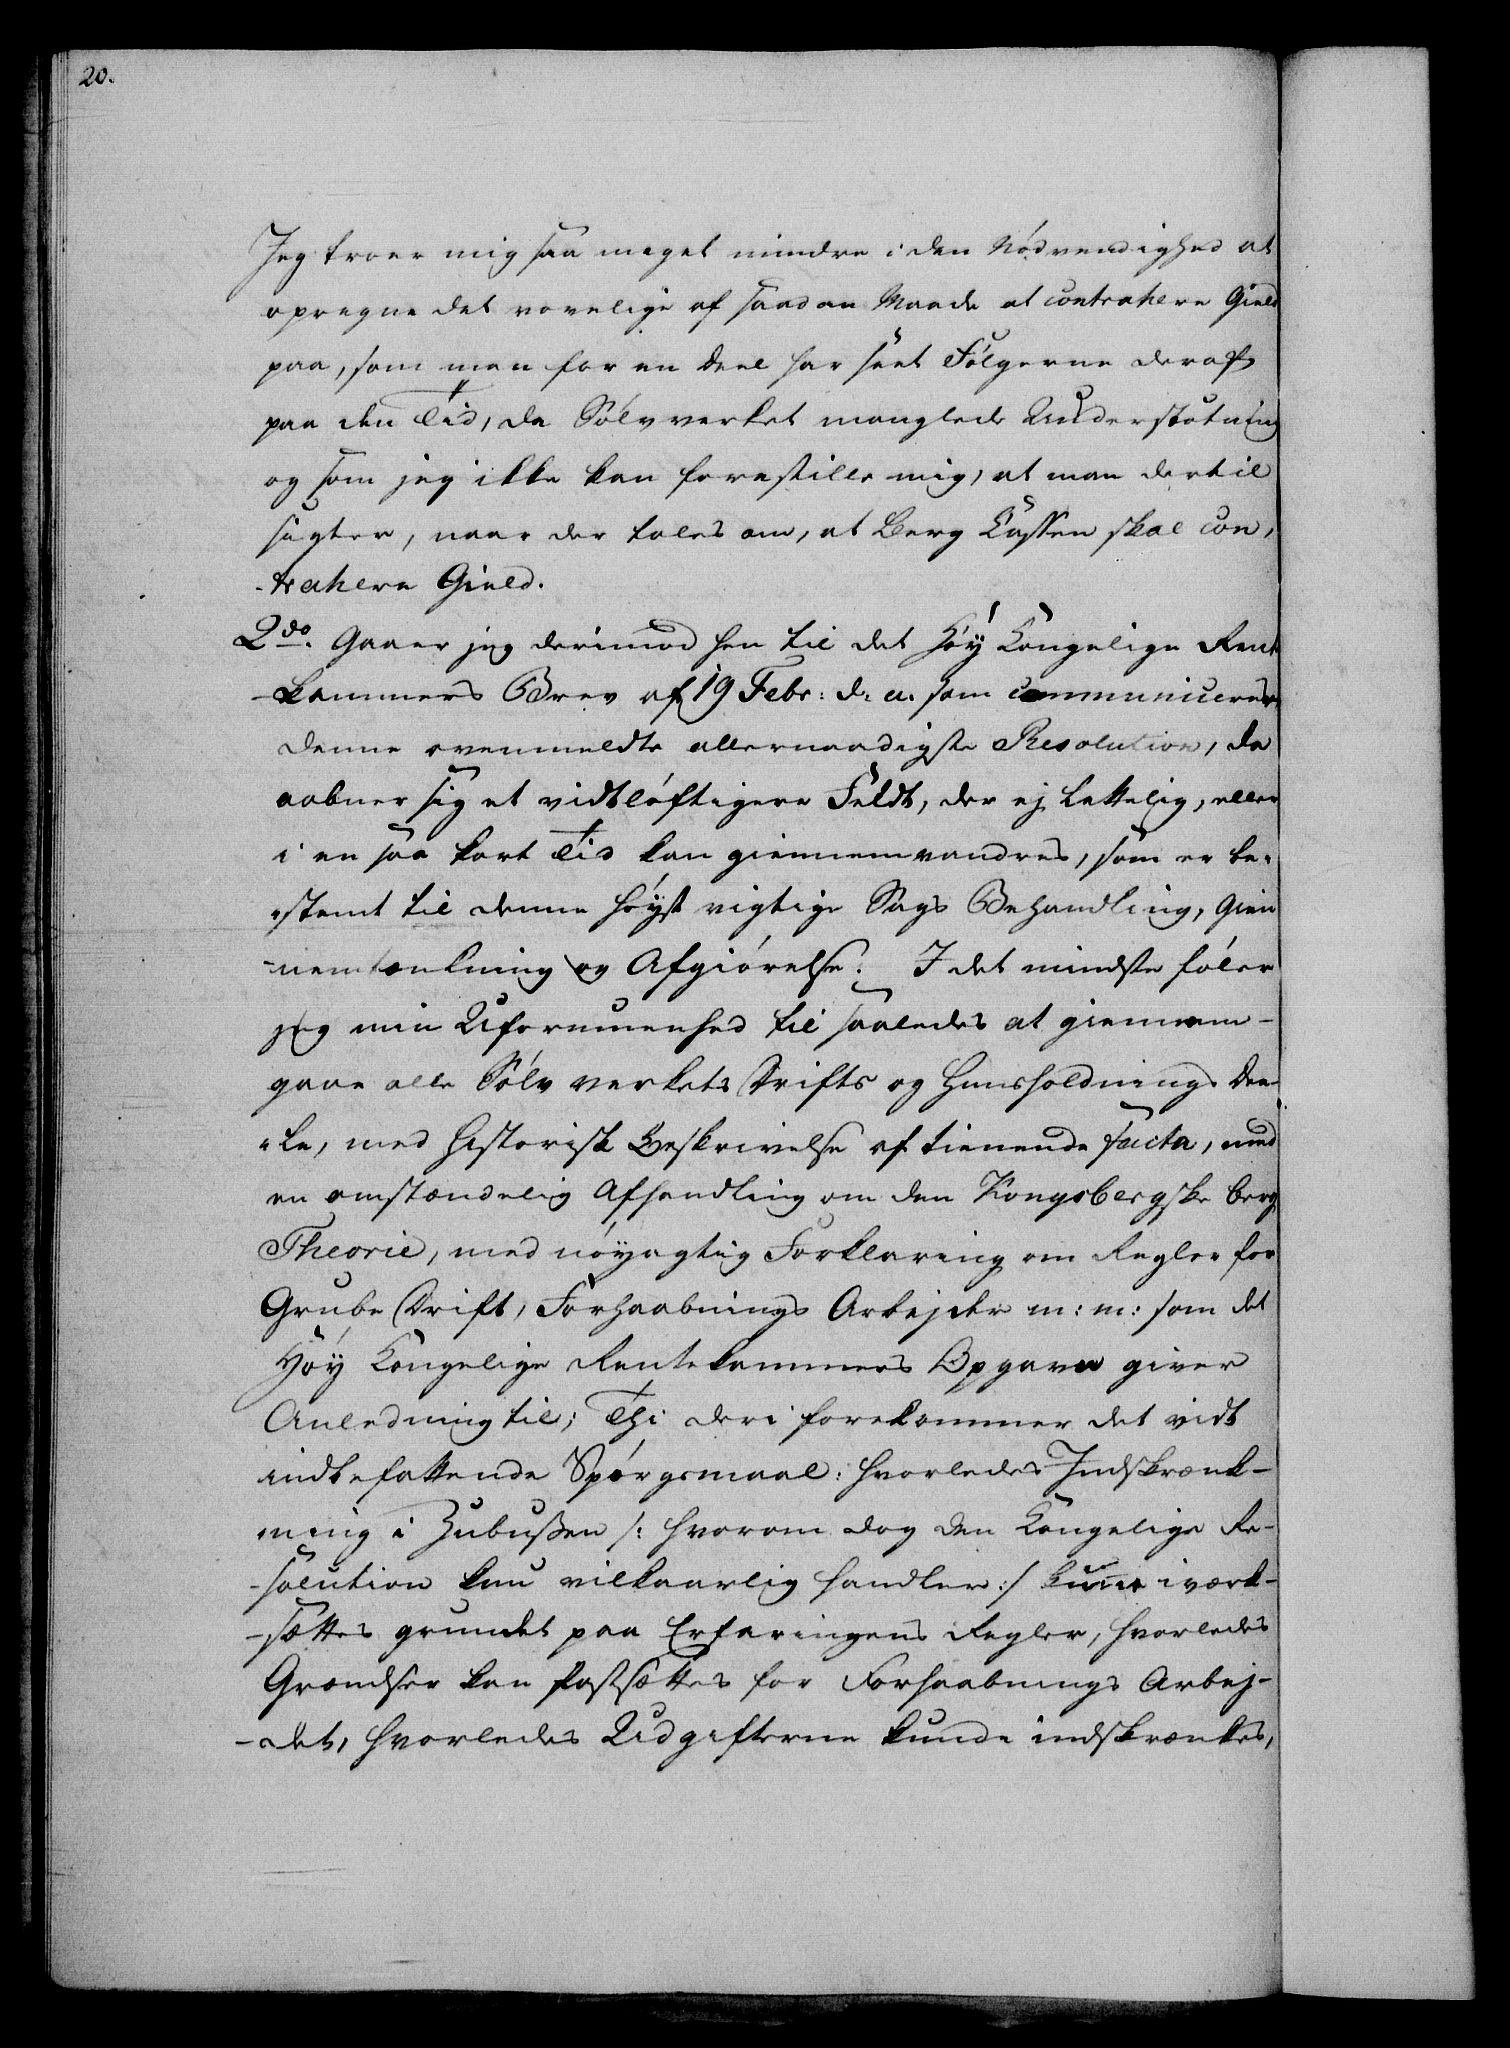 20.
Jeg troer mig saa meget mindre i den Nødvendighed at
opregne det vovelige af saadan Maade at contrahere Gield
paa, som man for en Deel har seet Følgerne deraf
paa den Tid, da Sølvverket manglede Understøtning
og som jeg ikke kan forestille mig, at man dertil
sigter, naar der tales om, at Berg Cassen skal con,
-trahere Gield.
2do. Gaaer jeg derimod hen til det Høy Kongelige Rente
-kammers Brev af 19 Febr: d: a. som communicerer
denne ovenmeldte allernaadigste Resolution, da
aabner sig et vidtløftigere Feldt, der ej lettelig, eller
i en saa kort Tid kan giennemvandres, som er be-
-stemt til denne høyst vigtige Sags Behandling, Gien
-nemtænkning og Afgiørelse. I det mindste føler
jeg min Uformuenhed til saaledes at giennem-
gaae alle Sølvverkets Drifts og Huusholdnings Dee-
-le, med historisk Beskrivelse af tienende facta, med
en omstændelig Afhandling om den Kongsbergske berg
Theorie, med nøyagtig Forklaring om Regler for
Grube Drift, Forhaabnings Arbejder m: m: som det
Høy Kongelige Rentekammers Opgave giver
Anledning til; Thi deri forekommer det vidt
indbefattende Spørgsmaal: hvorledes Indskrænk-
ning i Zubussen /: hvorom dog den Kongelige Re-
-solution kun vilkaarlig handler :/ kunne iværk-
-sættes grundet paa Erfaringens Regler, hvorledes
Grændser kan fastsættes for Forhaabnings Arbej-
-det, hvorledes Udgifterne kunde indskrænkes,